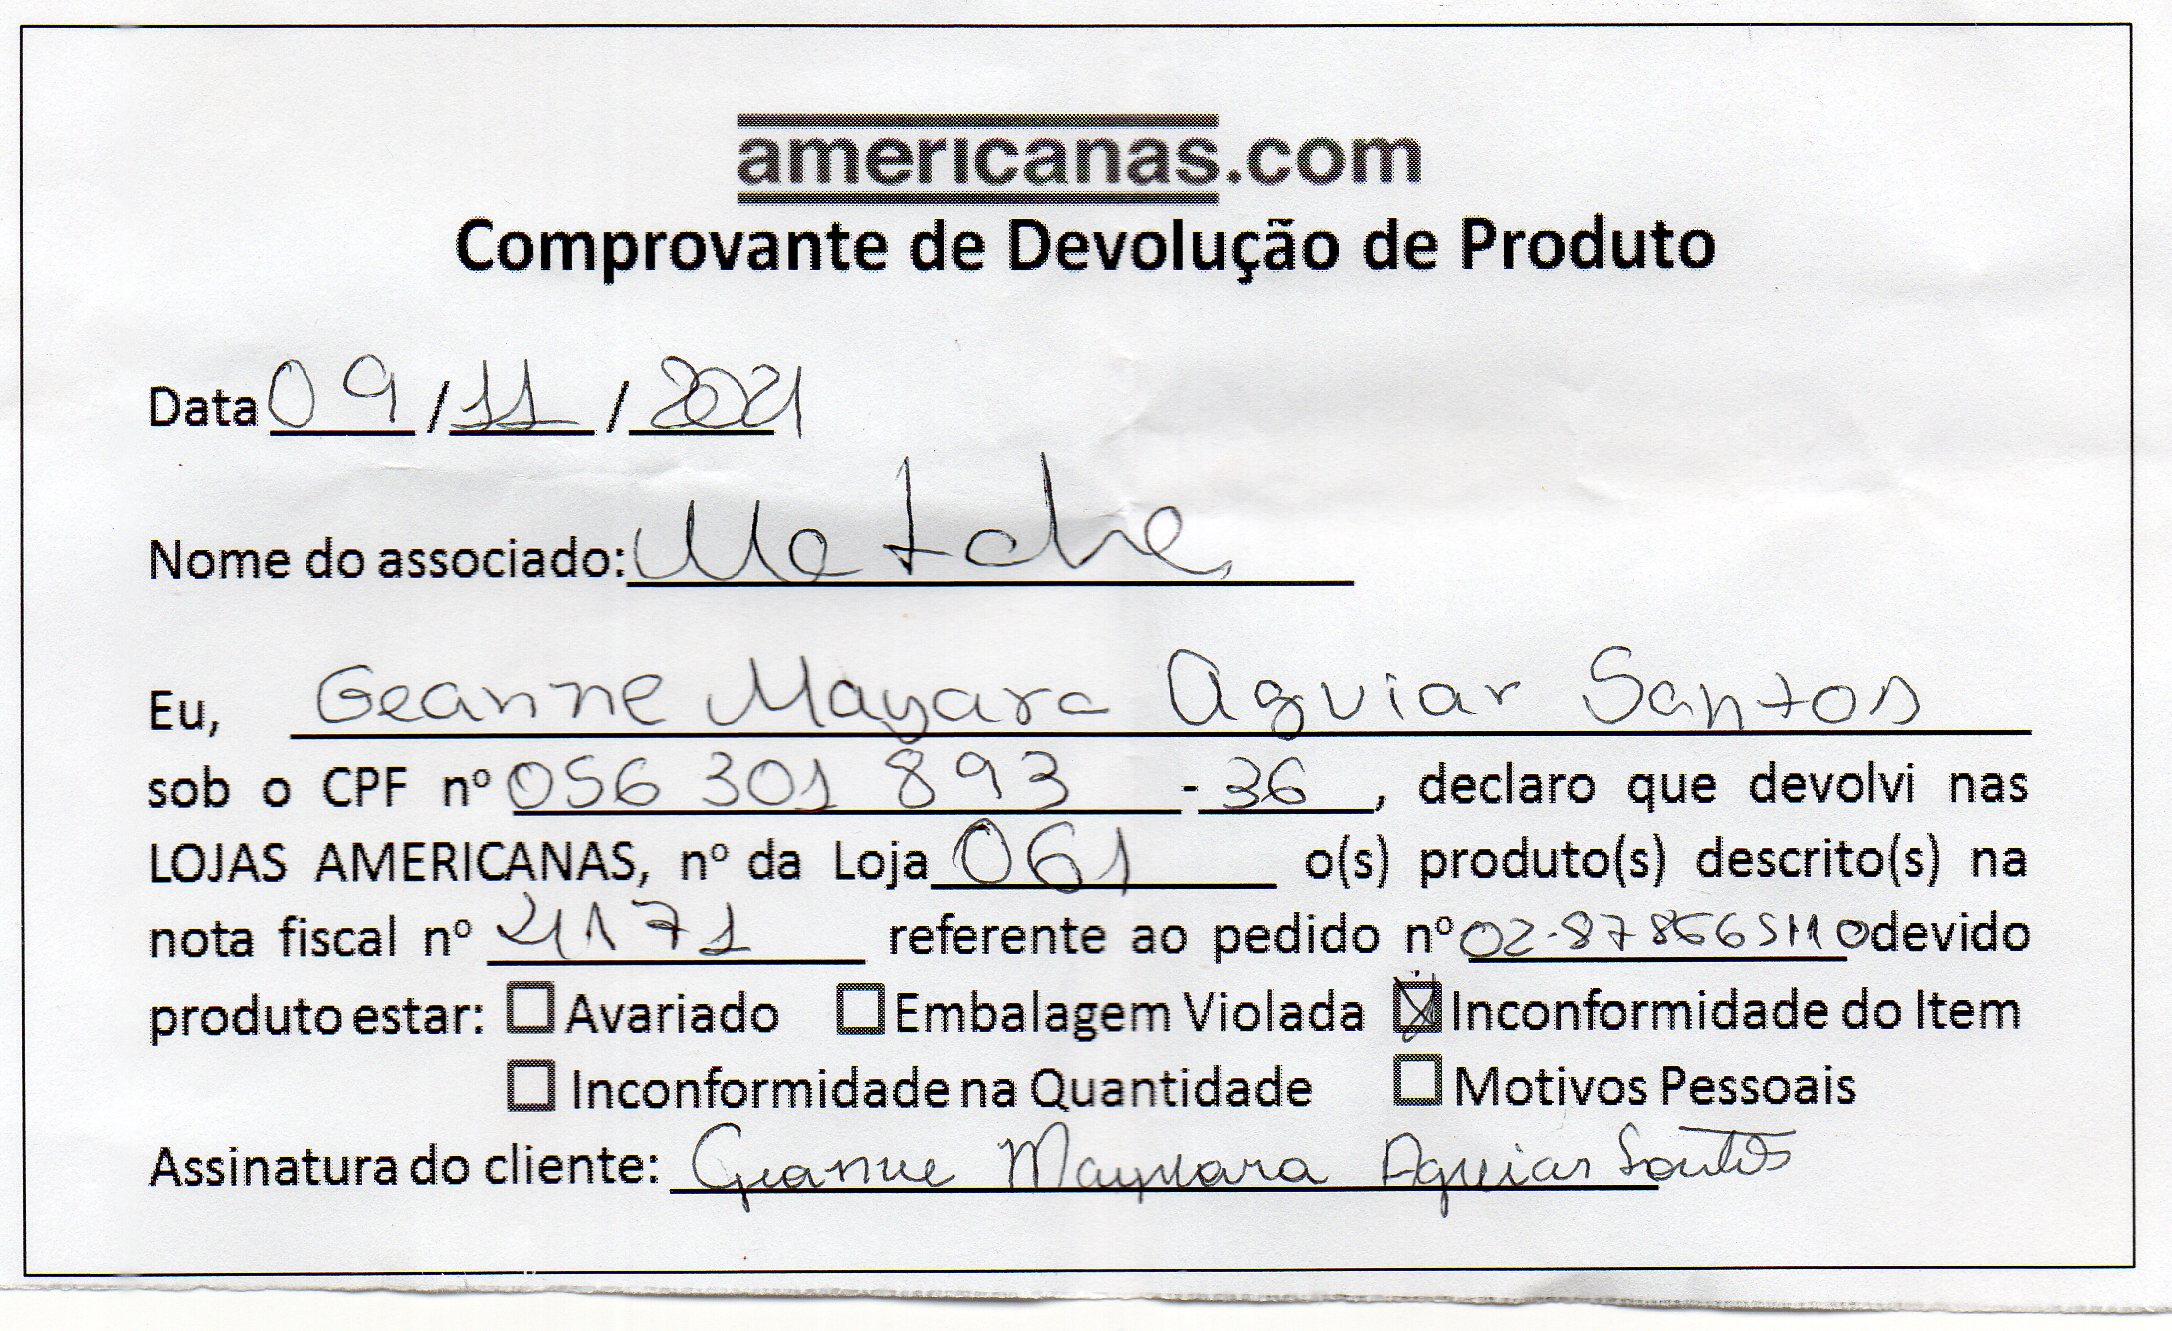 americanas.com
Comprovante de Devolução de Produto
Data 09/11/2021
Nome do associado:
Eu, Geanne Mayara Aguiar Santos
sob o CPF nº 056 301 893-36, declaro que devolvi nas
LOJAS AMERICANAS, nº da Loja 061 o(s) produto(s) descrito(s) na
nota fiscal nº 4171 referente ao pedido nº devido
produto estar: ☐ Avariado ☐ Embalagem Violada ☒ Inconformidade do Item
☐ Inconformidade na Quantidade ☐ Motivos Pessoais
Assinatura do cliente: Geanne Mayara Aguiar Santos